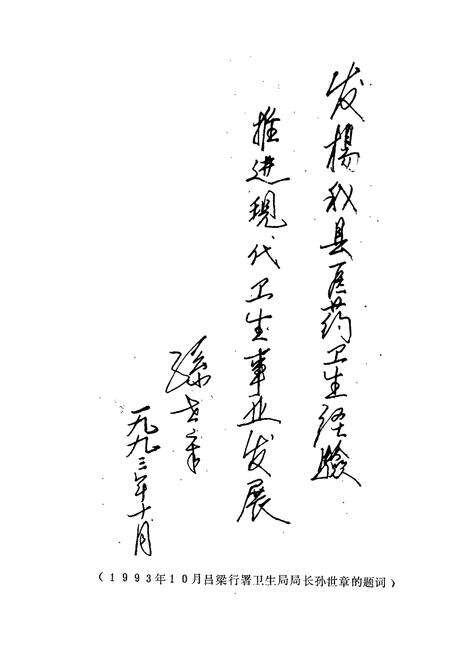 发揚我县医药卫生经験
推进現代卫生事业发展
孫世章
一九九三年十月
(1993年10月吕梁行署卫生局局长孙世章的题词)